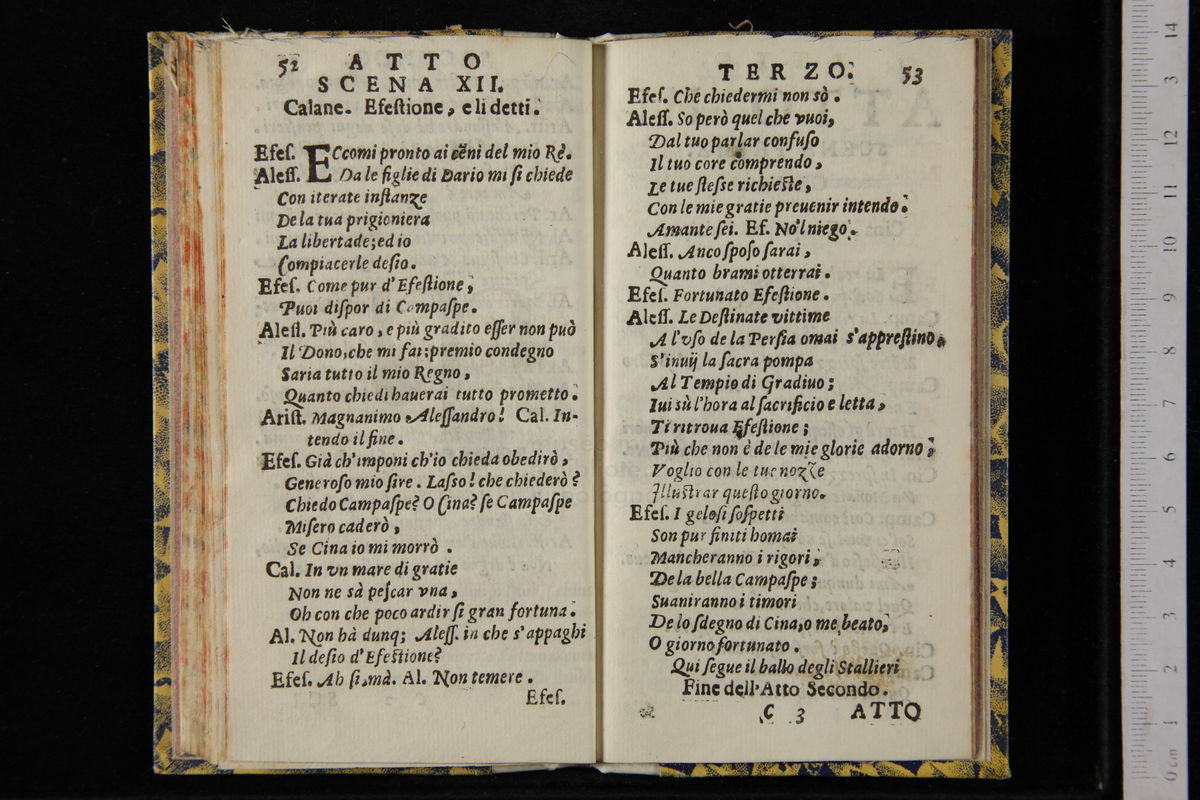 52 ATTO
SCENA XII.
Calane. Efeſtione, e li detti.
Efeſ. ECcomi pronto ai cēni del mio Rè.
Aleſſ. Da le figlie di Dario mi ſi chiede
Con iterate inſtanze
De la tua prigioniera
La libertade; ed io
Compiacerle deſio.
Efeſ. Come pur d'Efeſtione,
Puoi diſpor di Campaſpe.
Aleſſ. Più caro, e più gradito eſſer non può
Il Dono, che mi fai; premio condegno
Saria tutto il mio Regno,
Quanto chiedi hauerai tutto prometto.
Ariſt. Magnanimo Aleſſandro! Cal. In-
tendo il fine.
Efeſ. Già ch'imponi ch'io chieda obedirò,
Generoſo mio ſire. Laſſo! che chiederò?
Chiedo Campaſpe? O Cina? ſe Campaſpe
Miſero caderò,
Se Cina io mi morrò.
Cal. In vn mare di gratie
Non ne sà peſcar vna,
Oh con che poco ardir ſi gran fortuna.
Al. Non hà dunq; Aleſſ. in che s'appaghi
Il deſio d'Efeſtione?
Efeſ. Ah ſi, mà. Al. Non temere.
Efeſ.
TERZO. 53
Efeſ. Che chiedermi non sò.
Aleſſ. So però quel che vuoi,
Dal tuo parlar confuſo
Il tuo core comprendo,
Le tue ſteſse richieſte,
Con le mie gratie preuenir intendo.
Amante ſei. Ef. No'l niego.
Aleſſ. Anco ſpoſo ſarai,
Quanto brami otterrai.
Efeſ. Fortunato Efeſtione.
Aleſſ. Le Deſtinate vittime
A l'vſo de la Perſia omai s'appreſtino,
S'inuij la ſacra pompa
Al Tempio di Gradiuo;
Iui sù l'hora al ſacrificio e letta,
Ti ritroua Efeſtione;
Più che non è de le mie glorie adorno,
Voglio con le tue nozze
Illuſtrar queſto giorno.
Efeſ. I geloſi ſoſpetti
Son pur finiti homai
Mancheranno i rigori,
De la bella Campaſpe;
Suaniranno i timori
De lo ſdegno di Cina, o me beato,
O giorno fortunato.
Qui ſegue il ballo degli Stallieri
Fine dell'Atto Secondo.
C 3 ATTO